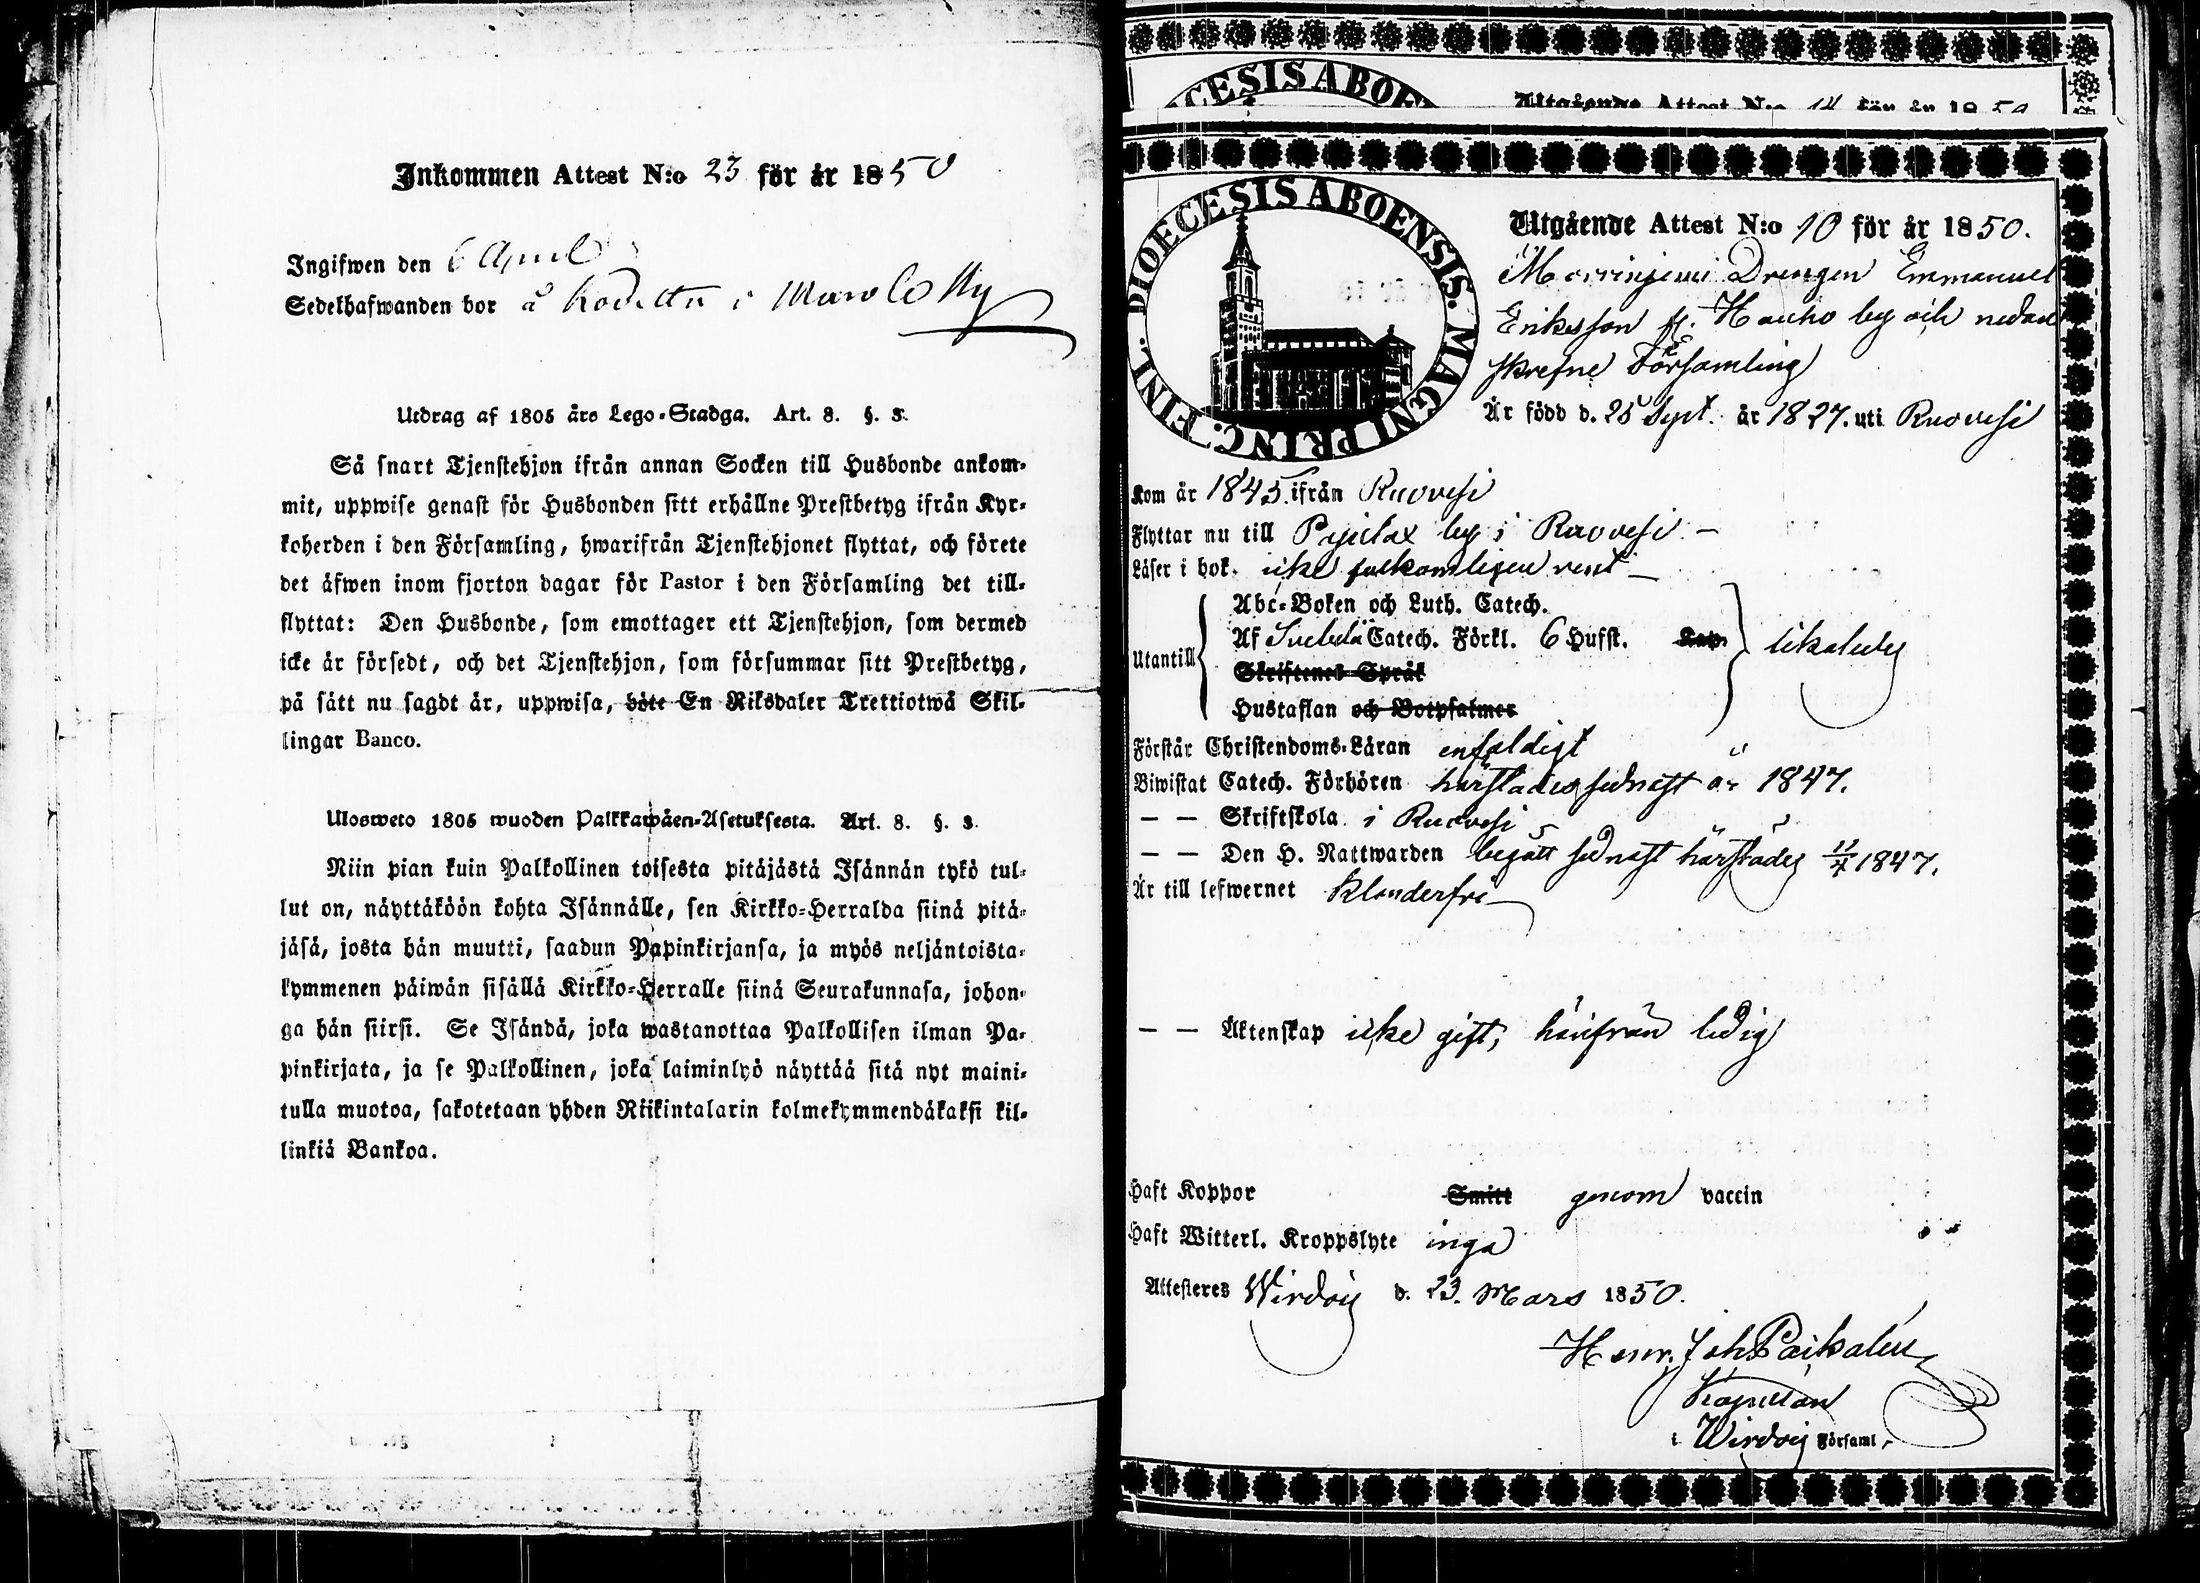 Inkommen Attest N:o 23 för år 1850
Ingifwen den 6 April
Sedelhafwanden bor å i
Utdrag af 1805 års Lego-Stadga. Art. 8. §. 3.
Så snart Tjenstehjon ifrån annan Socken till Husbonde ankom-
mit, uppwise genast för Husbonden sitt erhållne Prestbetyg ifrån Kyr-
koherden i den Församling, hwarifrån Tjenstehjonet flyttat, och förete
det äfwen inom fjorton dagar för Pastor i den Församling det till-
flyttat: Den Husbonde, som emottager ett Tjenstehjon, som dermed
icke är försedt, och det Tjenstehjon, som försummar sitt Prestbetyg,
på sätt nu sagdt är, uppwisa, böte En Riksdaler Trettiotwå Skil-
lingar Banco.
Ulosweto 1805 wuoden Palkkawäen-Asetuksesta. Art. 8. §. 3.
Niin pian kuin Palkollinen toisesta pitäjästä Isännän tykö tul-
lut on, näyttäköön kohta Isännälle, sen Kirkko-Herralda siinä pitä-
jäsä, josta hän muutti, saadun Papinkirjansa, ja myös neljäntoista-
kymmenen päiwän sisällä Kirkko-Herralle siinä Seurakunnasa, johon-
ga hän siirsi. Se Isändä, joka wastanottaa Palkollisen ilman Pa-
pinkirjata, ja se Palkollinen, joka laiminlyö näyttää sitä nyt maini-
tulla muotoa, sakotetaan yhden Riikintalarin kolmekymmendäkaksi kil-
linkiä Bankoa.
CESIS ABOE
Utgående Attest N:o 11 för år 1850
DIOECESIS ABOENSIS. MAGNI PRINC. FINL.
Utgående Attest N:o 10 för år 1850.
Drengen Emmanuel
Eriksson fr. Hauho by och nedan
skrefne Församling
Är född d. 25 Sept. år 1827. uti Ruovesi
Kom år 1845. ifrån Ruovesi
Flyttar nu till by i Ruovesi. -
Läser i bok. icke fulkomligen rent -
Abc-Boken och Luth. Catech.
Utantill Af Svebelii Catech. Förkl. 6 Hufst. Kap. likaledes
Skriftenes Språk
Hustaflan och Botpsalmer
Förstår Christendoms-Läran enfaldigt
Biwistat Catech. Förhören härstädes sednast år 1847.
— — Skriftskola i Ruovesi
— — Den H. Nattwarden begått sednast härstädes 11/4 1847.
Är till lefwernet klanderfri -
— — Äktenskap icke gift; härifrån ledig
Haft Koppor Smitt genom vaccin
Haft Witterl. Kroppslyte inga
Attesteres Wirdois d. 23. Mars 1850.
Henr. Joh Paikalén
Kapellan
i Wirdois Församl.